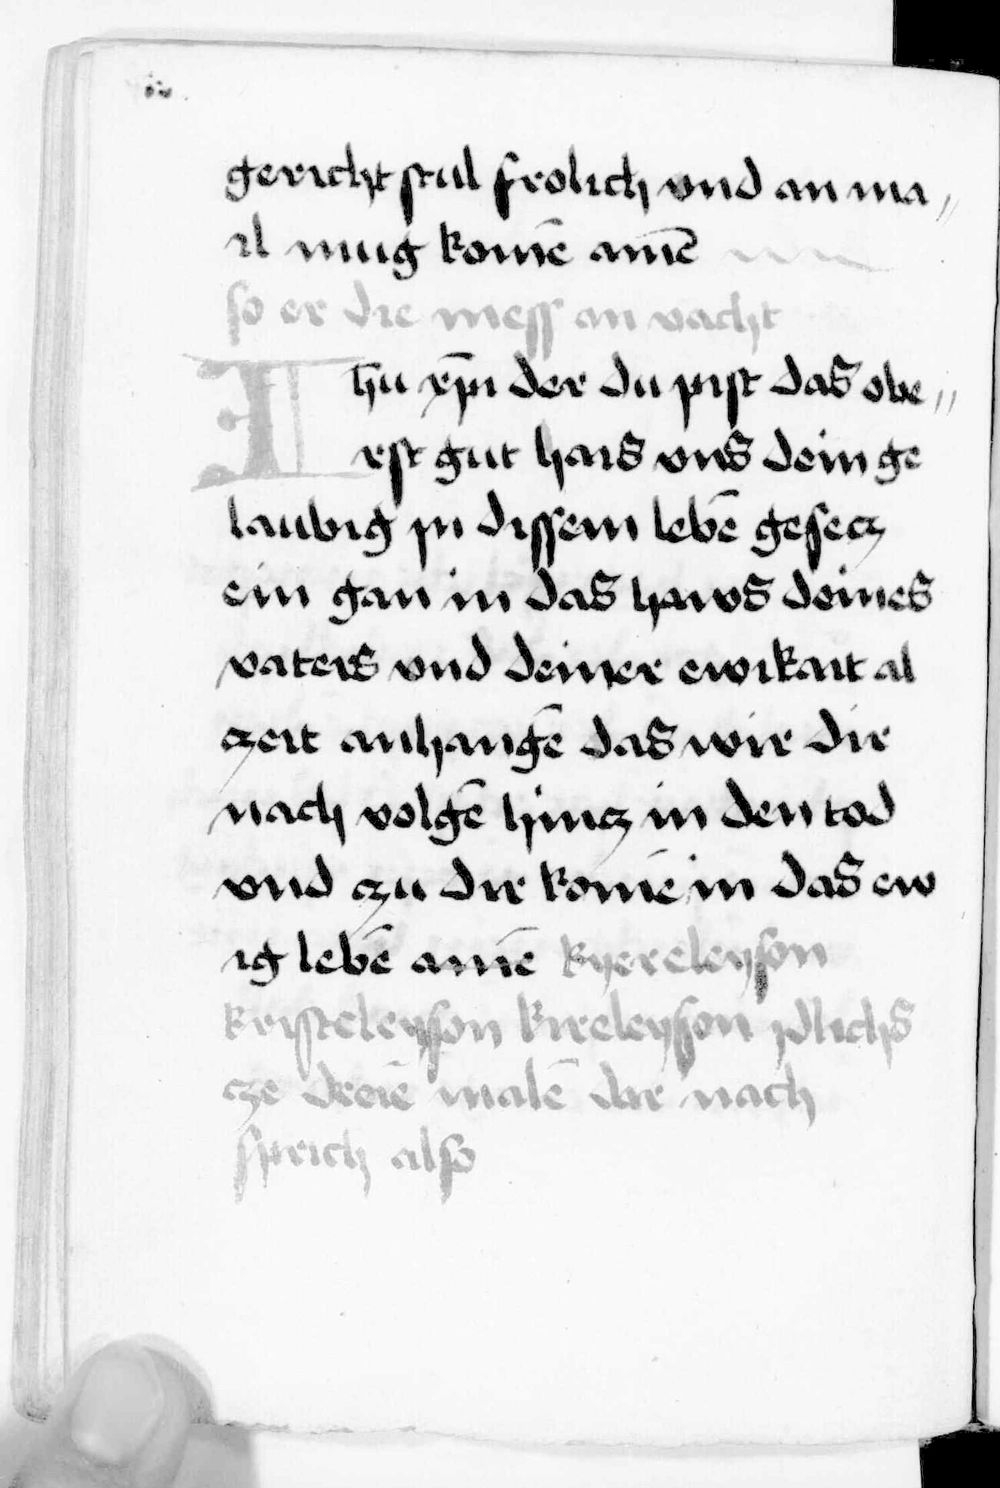 gericht stul frolich vnd an ma〃
il mug komē amē
so er die mess an vacht
Ihu xp̄i der du pist das obe〃
rst gut hais vns dein ge
laubig in dissem lebē gesecz
ein gan in das haws deines
vaters vnd deiner ewikait al
zeit anhangē das wir dir
nach volgē hincz in den tod
vnd czu dir komē in das ew
ig lebē amē kyereleyson
kristeleyson kireleyson ydlichs
cze dreiē malē dar nach
sprich also